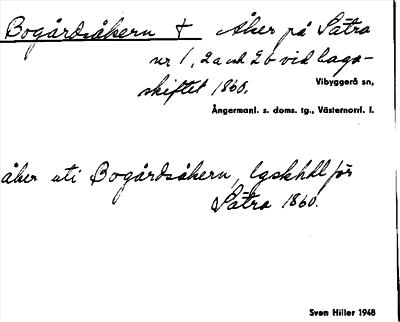 Bogårdsåkern † Åker på Sätra
nr 1, 2a och 2b vid laga-
skiftet 1860.
Vibyggerå sn,
Ångermanl. s. doms. tg., Västernorrl. l.
åker uti Bogårdsåkern, lgskhdl för
Sätra 1860.
Sven Hiller 1948